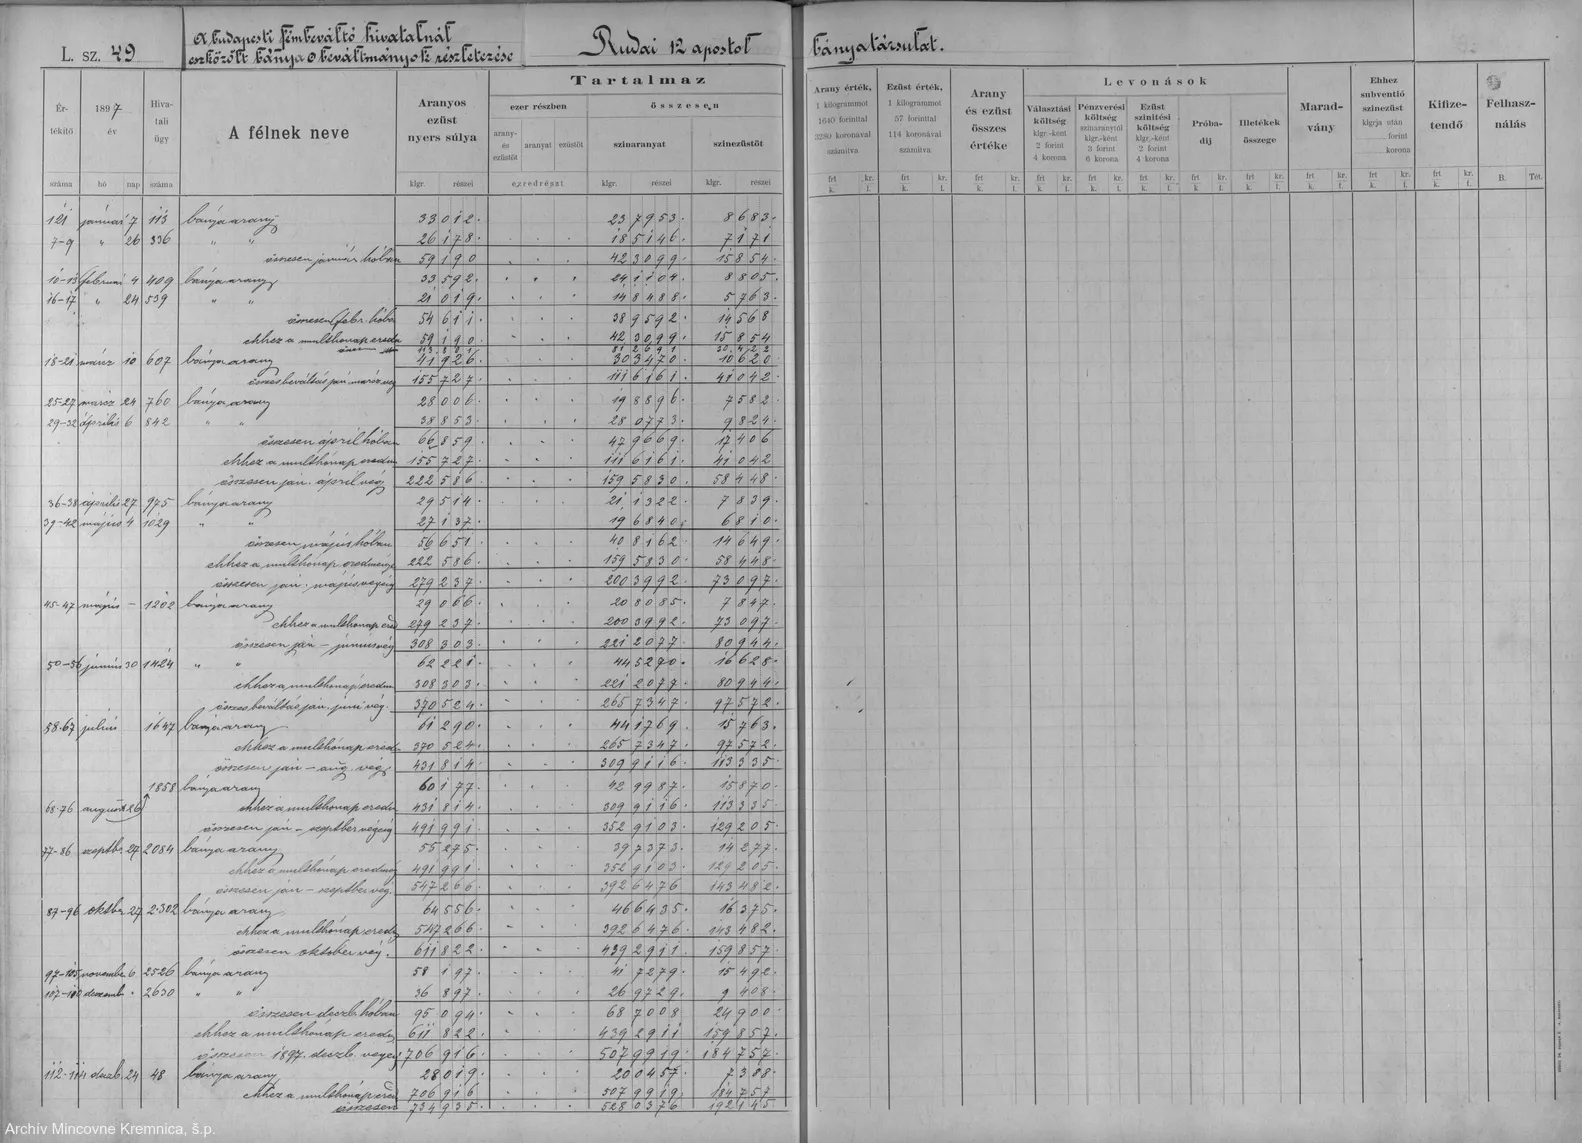 L. sz. 49
A budapesti fémbeváltó hivatalnál
eszközölt bánya beváltmányok részletezése
Rudai 12 apostol
bányatársulat.
Értékitő száma
1897 év
hó
nap
Hivatali ügy száma
A félnek neve
Aranyos ezüst nyers súlya
klgr. részei
Tartalmaz
ezer részben
összesen
arany- és ezüstöt
aranyat
ezüstöt
ezredrészt
szinaranyat
szinezüstöt
klgr. részei
klgr. részei
Arany érték, 1 kilogrammot 1640 forinttal 3280 koronával számitva
Ezüst érték, 1 kilogrammot 57 forinttal 114 koronával számitva
Arany és ezüst összes értéke
Levonások
Választási költség klgr.-ként 2 forint 4 korona
Pénzverési költség szinaranytól klgr.-ként 3 forint 6 korona
Ezüst szinitési költség klgr.-ként 2 forint 4 korona
Próbadij
Illetékek összege
Maradvány
Ehhez subventió szinezüst klgrja után forint korona
Kifizetendő
Felhasználás
frt k. kr. f.
B. Tét.
121 január 7 113 bánya arany 33 012 23 7953 8 683
7-9 " 26 336 " " 26 178 18 5146 7 171
összesen január hóban 59 190 42 3099 15 854
10-15 február 4 409 bánya arany 33 592 24 1104 8 805
16-17 " 24 539 " " 21 019 14 8488 5 763
összesen febr. hóban 54 611 38 9592 14 568
ehhez a multhónap ered. 59 190 42 3099 15 854
113 801 81 2691 30 422
18-21 márcz 10 607 bánya arany 41 926 30 3470 10 620
összes beváltás jan. márcz vég 155 727 111 6161 41 042
25-27 márcz 24 760 bánya arany 28 006 19 8896 7 582
29-32 április 6 842 " " 38 853 28 0773 9 824
összesen ápril hóban 66 859 47 9669 17 406
ehhez a multhónap eredm 155 727 111 6161 41 042
összesen ján. ápril vég 222 586 159 5830 58 448
36-38 április 27 975 bánya arany 29 514 21 1322 7 839
39-42 május 4 1029 " " 27 137 19 6840 6 810
összesen május hóban 56 651 40 8162 14 649
ehhez a multhónap eredménye 222 586 159 5830 58 448
összesen jan. május végéig 279 237 200 3992 73 097
45-47 május - 1202 bánya arany 29 066 20 8085 7 847
ehhez a multhónap ered 279 237 200 3992 73 097
összesen ján - június vég 308 303 221 2077 80 944
50-56 június 30 1424 " " 62 221 44 5270 16 628
ehhez a multhónap eredm 308 303 221 2077 80 944
összes beváltás ján. júni vég. 370 524 265 7347 97 572
58-67 július 1647 bánya arany 61 290 44 1769 15 763
ehhez a multhónap ered. 370 524 265 7347 97 572
összesen ján - aug. vég. 431 814 309 9116 113 335
1858 bánya arany 60 177 42 9987 15 870
68-76 august 26 ehhez a multhónap eredm 431 814 309 9116 113 335
összesen ján - szeptber végéig 491 991 352 9103 129 205
77-86 szeptbr. 27 2084 bánya arany 55 275 39 7373 14 277
ehhez a multhónap eredmény 491 991 352 9103 129 205
összesen ján - szeptber vég. 547 266 392 6476 143 482
87-96 oktbr. 27 2302 bánya arany 64 556 46 6435 16 375
ehhez a multhónap eredm 547 266 392 6476 143 482
összesen oktober vég. 611 822 439 2911 159 857
97-105 novembr. 6 2526 bánya arany 58 197 41 7279 15 492
deszemb. 2630 " " 36 897 26 9729 9 408
összesen deszb. hóban 95 094 68 7008 24 900
ehhez a multhónap eredm 611 822 439 2911 159 857
összesen 1897. deszb. vegeig 706 916 507 9919 184 757
deszb. 24 48 bánya arany 28 019 20 0457 7 388
ehhez a multhónap ered 706 916 507 9919 184 757
összesen 734 935 528 0376 192 145
Archív Mincovne Kremnica, š.p.